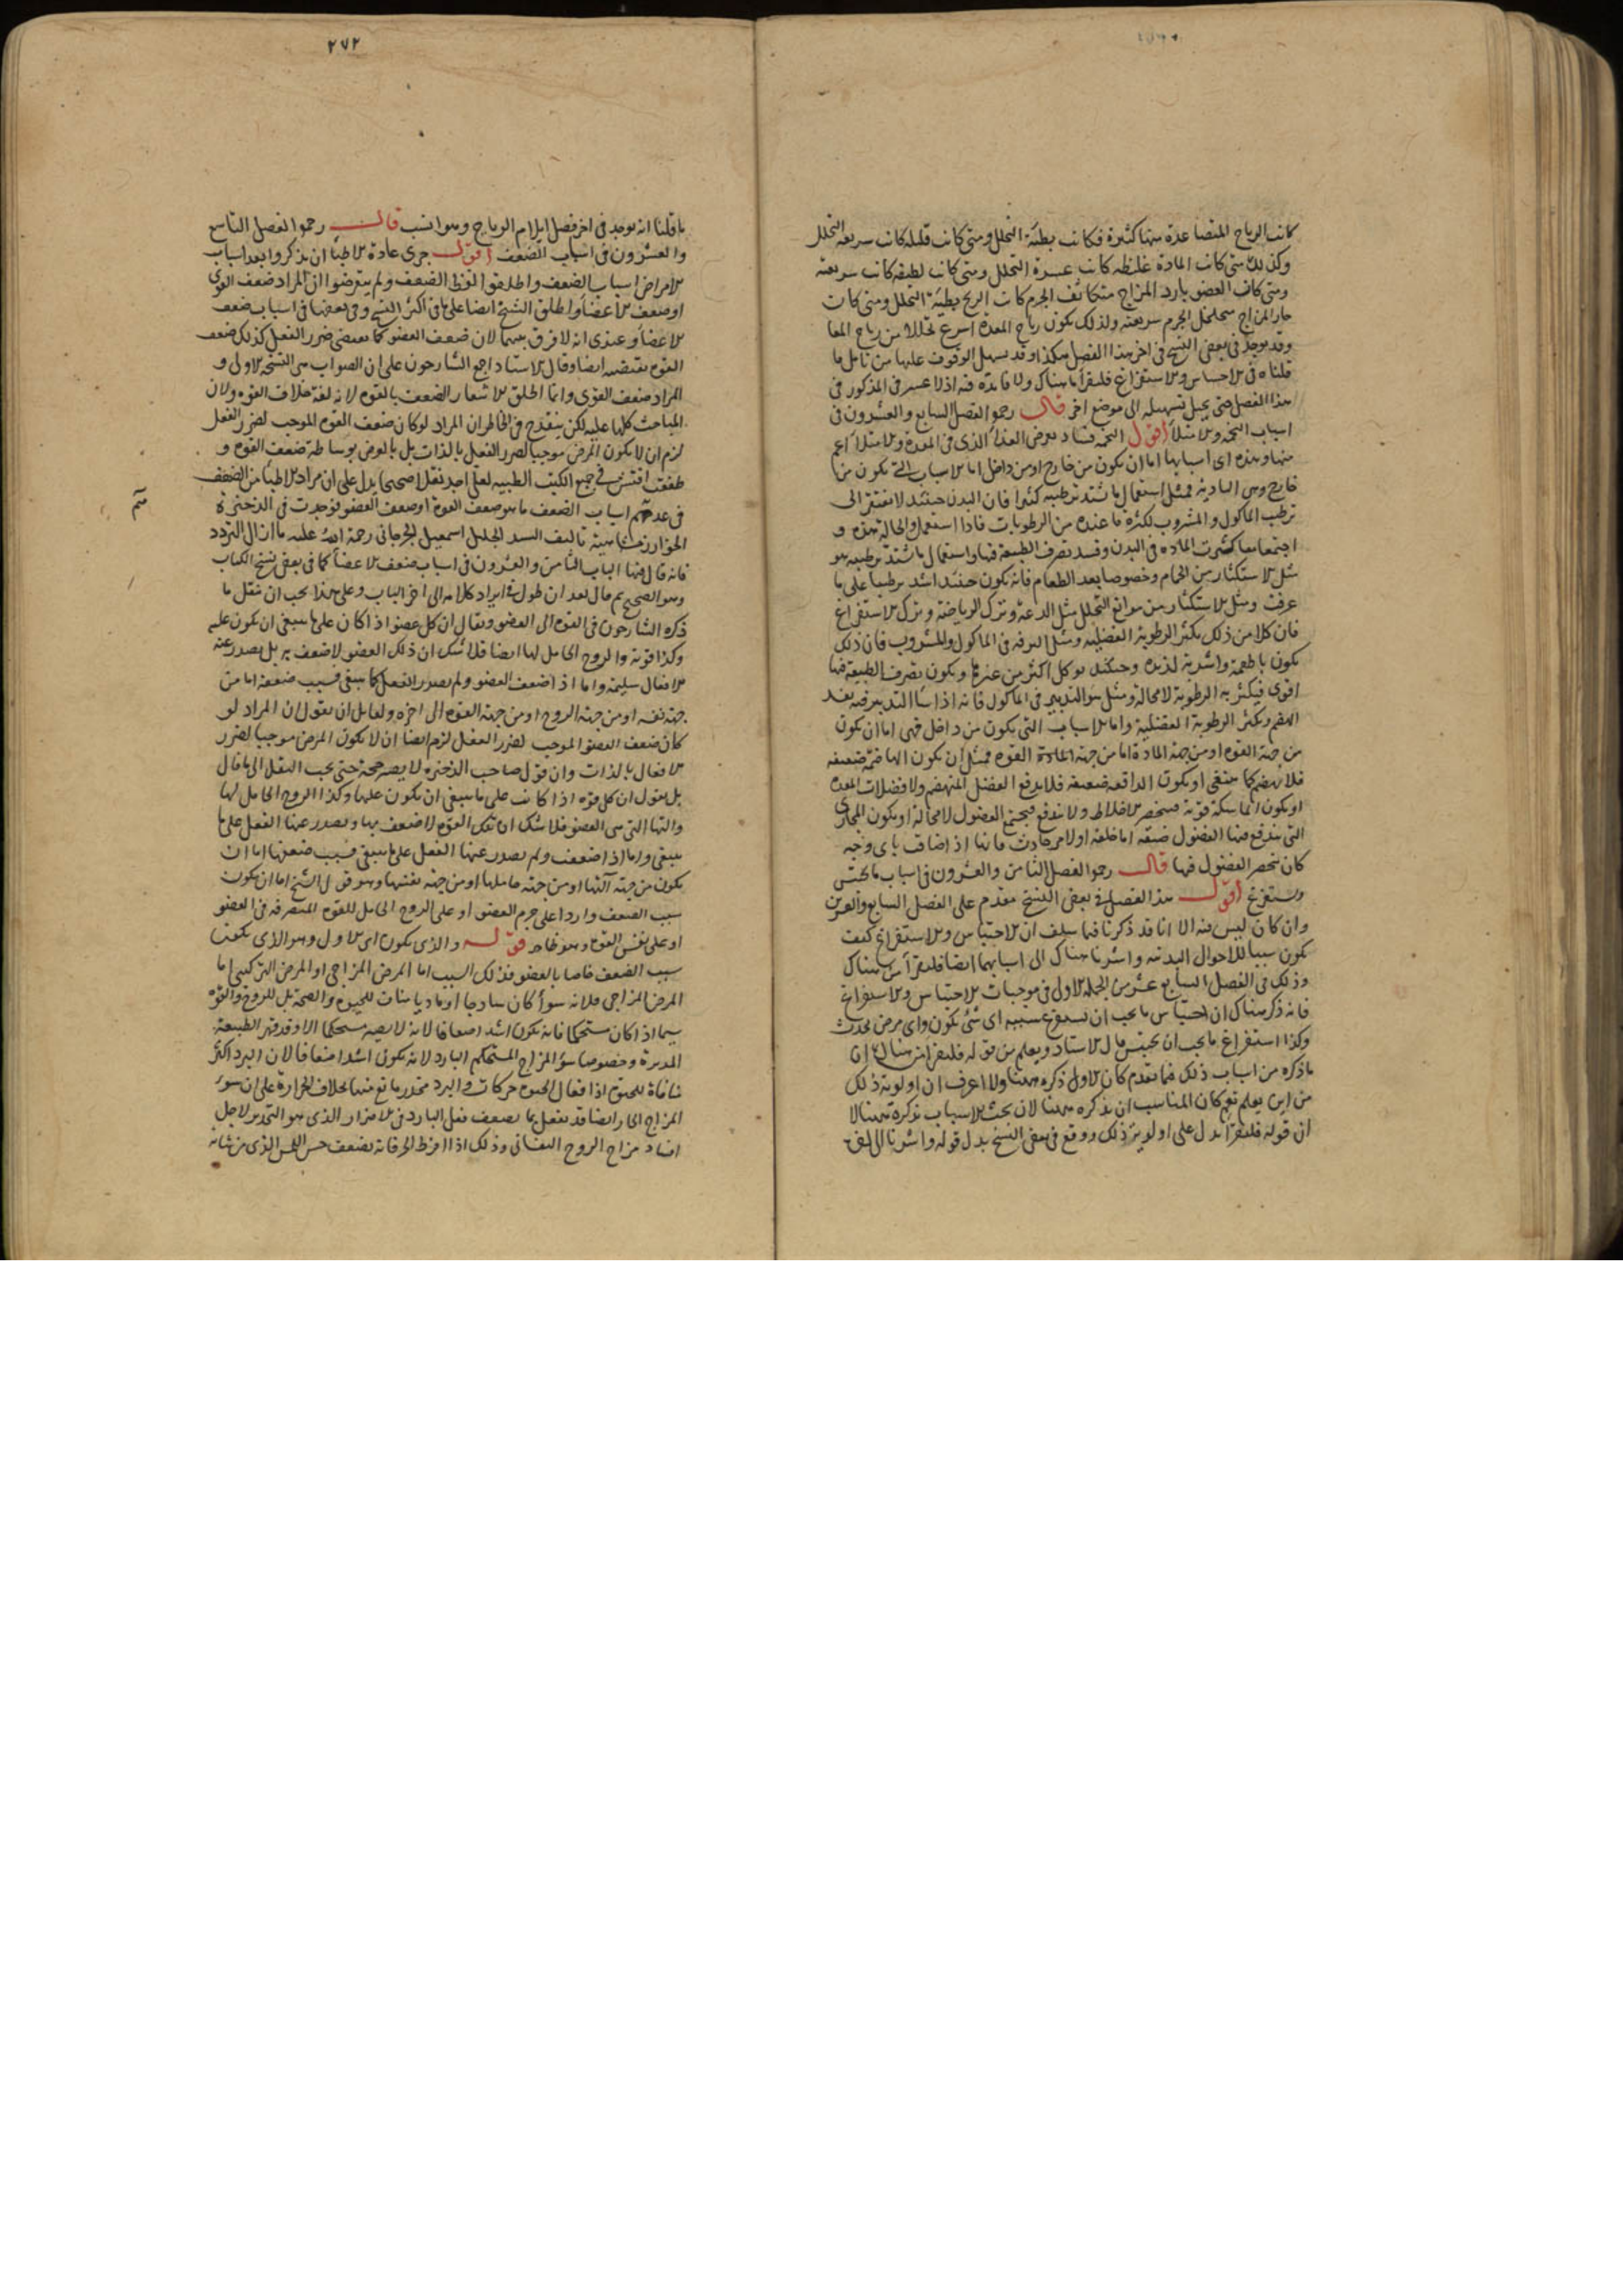 كانت الرياح المتصاعدة منها كثيرة فكانت بطيئة التحلل ومتى كانت قليلة كانت سريعة التحلل
وكذلك متى كانت المادة غليظة كانت عسرة التحلل ومتى كانت لطيفة كانت سريعته
ومتى كان العضو بارد المزاج متكاثف الجرم كانت الريح بطيئة التحلل ومتى كان
حار المزاج متخلخل الجرم سريعته ولذلك يكون رياح المعدة اسرع تحللا من رياح المعا
وقد يوجد في بعض النسخ في اخر هذا الفصل هكذا وقد يسهل الوقوف عليها من تامل ما
قلناه في الاحساس والاستفراغ فليقرأ ما هناك ولا فائدة فيه اذ لا عسر في المذكور في
هذا الفصل حتى يحيل تسهيله الى موضع اخر قال رحمه الله الفصل السابع والعشرون في
اسباب التخمة والامتلا اقول التخمة فساد يعرض الغذاء الذي في المعدة والامتلا اعم
منها وهذه اى اسبابها اما ان يكون من خارج او من داخل اما الاسباب التي يكون من
خارج وهي البادية فمثل استعمال ما يشتد ترطيبه كثيرا فان البدن حينئذ لا يفتقر الى
ترطيب الماكول والمشروب لكثرة ما عنده من الرطوبات فاذا استعمل والحالة هذه و
اجتمعا معا كثرت المادة في البدن وفسد تصرف الطبيعة فيها واستعمال ما يشتد ترطيبه هو
مثل الاستكثار من الحمام وخصوصا بعد الطعام فانه يكون حينئذ اشد ترطيبا على ما
عرفت ومثل الاستكثار من موانع التحلل مثل الدعة وترك الرياضة وترك الاستفراغ
فان كلا من ذلك يكثر الرطوبة الفضلية ومثل الترفه في الماكول والمشروب فان ذلك
يكون باطعمة واشربة لذيذة وحينئذ يوكل اكثر من غيرها ويكون تصرف الطبيعة فيها
اقوى فيكثر به الرطوبة لا محالة ومثل سوء التدبير في الماكول فانه اذا ساء التدبير فيه يفسد
الهضم ويكثر الرطوبة الفضلية واما الاسباب التي يكون من داخل فهي اما ان يكون
من جهة القوه او من جهة المادة اما من جهة القوه فمثل ان يكون الهاضمة ضعيفة
فلا يهضم كما ينبغي او يكون الدافعة ضعيفة فلا يدفع الفضل المنهضم ولا فضلات المعدة
او يكون الماسكة قوية فيحصر الاخلاط ولا يندفع فيجتمع الفضول لا محالة او يكون المجارى
التي يندفع منها الفضول ضيقة اما خلقة او لامر حادث فانها اذا ضاقت باى وجه
كان ينحصر الفضول فيها قال رحمه الله الفصل الثامن والعشرون في اسباب ما يحتبس
ويستفرغ اقول هذا الفصل في بعض النسخ مقدم على الفصل السابع والعشرين
وان كان ليس منه الا انا قد ذكرنا فيما سلف ان الاحتباس والاستفراغ كيف
يكون سببا للاحوال البدنية واشرنا هناك الى اسبابهما ايضا فليقرأ من هناك
وذلك في الفصل السابع عشر من الجملة الاول في موجبات الاحتباس والاستفراغ
فانه ذكر هناك ان احتباس ما يجب ان يستفرغ سببه اى شئ يكون واى مرض يحدث
وكذا استفراغ ما يجب ان يحتبس قال الاستاد ويعلم من قوله فليقرأ من هناك ان
ما ذكره من اسباب ذلك فيما تقدم كان الاولى ذكره ههنا ولا اعرف ان اولوية ذلك
من اين يعلم نعم كان المناسب ان يذكره ههنا لان بحث الاسباب يذكره ههنا لا
ان قوله فليقرأ يدل على اولوية ذلك ووقع في بعض النسخ بدل قوله واشرنا
٢٧٢
ما قلنا انه يوجد في اخر فصل ايلام الرياح وهو انسب قال رحمه الله الفصل التاسع
والعشرون في اسباب الضعف اقول جرى عادة الاطبا ان يذكروا بعد اسباب
الامراض اسباب الضعف واطلقوا لفظ الضعف ولم يتعرضوا ان المراد ضعف القوى
او ضعف الاعضا واطلق الشيخ ايضا على ما في اكثر النسخ وفي بعضها في اسباب ضعف
الاعضا وعندى انه لا فرق بينهما لان ضعف العضو كما يقتضى ضرر الفعل كذلك ضعف
القوه يقتضيه ايضا وقال الاستاد اجمع الشارحون على ان الصواب هي النسخة الاولى و
المراد ضعف القوى وانما اطلق لاشعار الضعف بالقوه لانه لغة خلاف القوه ولان
المباحث كلها عليه لكن ينقدح في الخاطر ان المراد لو كان ضعف القوه الموجب لضرر الفعل
لزم ان لا يكون المرض موجبا لضرر الفعل بالذات بل بالعرض بوساطة ضعف القوه و
طفقت افتش في جميع الكتب الطبية لعلى اجد نقلا صحيحا يدل على ان مراد الاطبا من الضعف
في عدهم اسباب الضعف ما هو ضعف القوه او ضعف العضو فوجدت في الذخيرة
الخوارزمشاهية تاليف السيد الجليل اسمعيل الجرجاني رحمة الله عليه ما ازال التردد
فانه قال فيها الباب الثامن والعشرون في اسباب ضعف الاعضا كما في بعض نسخ الكتاب
وهو الصحيح ثم قال بعد ان طول في ايراد كلامه الى اخر الباب وعلى هذا يجب ان ينقل ما
ذكره الشارحون في القوه الى العضو ويقال ان كل عضو اذا كان على ما ينبغي ان يكون عليه
وكذا قوته والروح الحامل لها ايضا فلا شك ان ذلك العضو لا ضعف به بل يصدر عنه
الافعال سليمة واما اذا ضعف العضو ولم يصدر الفعل كما ينبغي فسبب ضعفه اما من
جهة نفسه او من جهة الروح او من جهة القوه الى اخره ولقايل ان يقول ان المراد لو
كان ضعف العضو الموجب لضرر الفعل لزم ايضا ان لا يكون المرض موجبا لضرر
الافعال بالذات وان قول صاحب الذخيرة لا يصير حجة حتى يجب النقل الى ما قال
بل يقول ان كل قوه اذا كانت على ما ينبغي ان يكون عليها وكذا الروح الحامل لها
والتها التي هي العضو فلا شك ان تلك القوه لا ضعف بها ويصدر عنها الفعل على ما
ينبغي واما اذا ضعفت ولم يصدر عنها الفعل على ما ينبغي فسبب ضعفها اما ان
يكون من جهة آلتها او من جهة حاملها او من جهة نفسها وهو قول الشيخ اما ان يكون
سبب الضعف واردا على جرم العضو او على الروح الحامل للقوه المتصرفه في العضو
او على نفس القوه وهو ظاهر قوله والذى يكون اى الاول وهو الذى يكون
سبب الضعف خاصا بالعضو فذلك السبب اما المرض المزاجي او المرض التركيبي اما
المرض المزاجي فلانه سوء كان ساذجا او ماديا مناف للحيوه والصحة بل للروح والقوه
سيما اذا كان مستحكما فانه يكون اشد اضعافا لانه لا يصير مستحكما الا وقد قهر الطبيعة
المدبرة وخصوصا سوء المزاج المستحكم البارد لانه يكون اشد اضعافا لان البرد اكثر
منافاة للحيوه اذ افعال الحيوه حركات والبرد مخدر مانع عنها بخلاف الحرارة على ان سوء
المزاج الحار ايضا قد يفعل بما يضعف فعل البارد في الاضرار الذى هو التخدير لاجل
افساد مزاج الروح النفسانى وذلك اذا افرط الحر فانه يضعف حس اللمس الذى من شانه